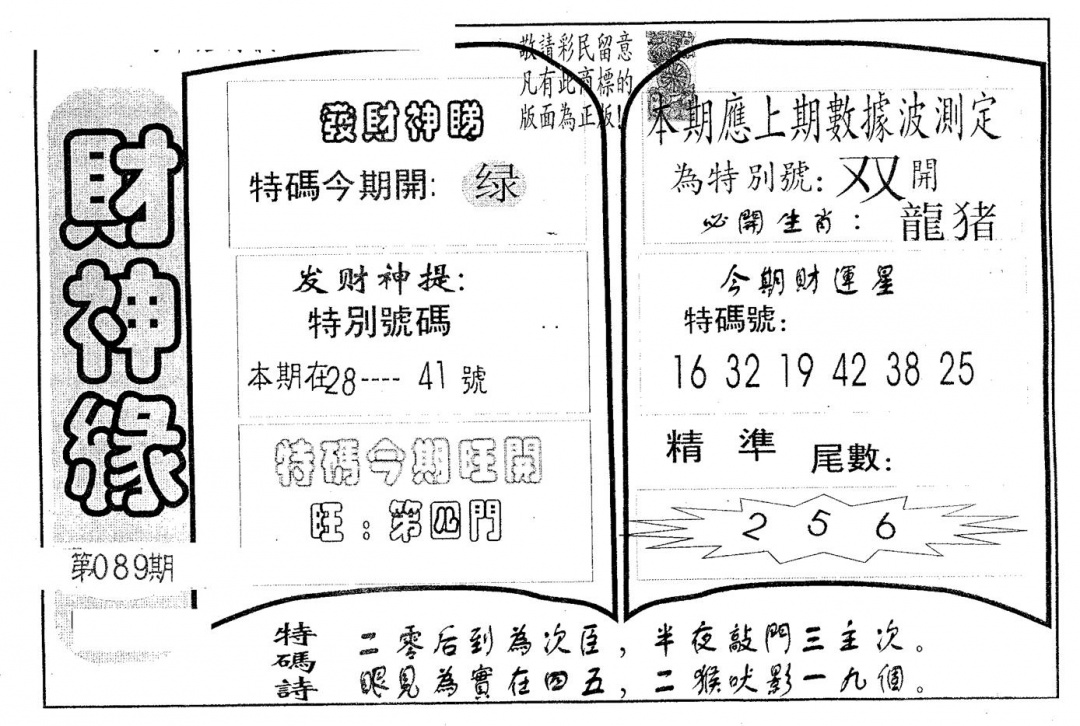 財神緣
第089期
敬請彩民留意
凡有此商標的
版面為正版!
發財神睇
特碼今期開: 绿
发财神提:
特別號碼
本期在28---- 41 號
特碼今期旺開
旺：第四門
本期應上期數據波測定
為特別號: 双 開
必開生肖： 龍猪
今期財運星
特碼號:
16 32 19 42 38 25
精準 尾數:
2 5 6
特碼詩
二零后到為次臣，半夜敲門三主次。
眼見為實在四五，二猴吠影一九個。